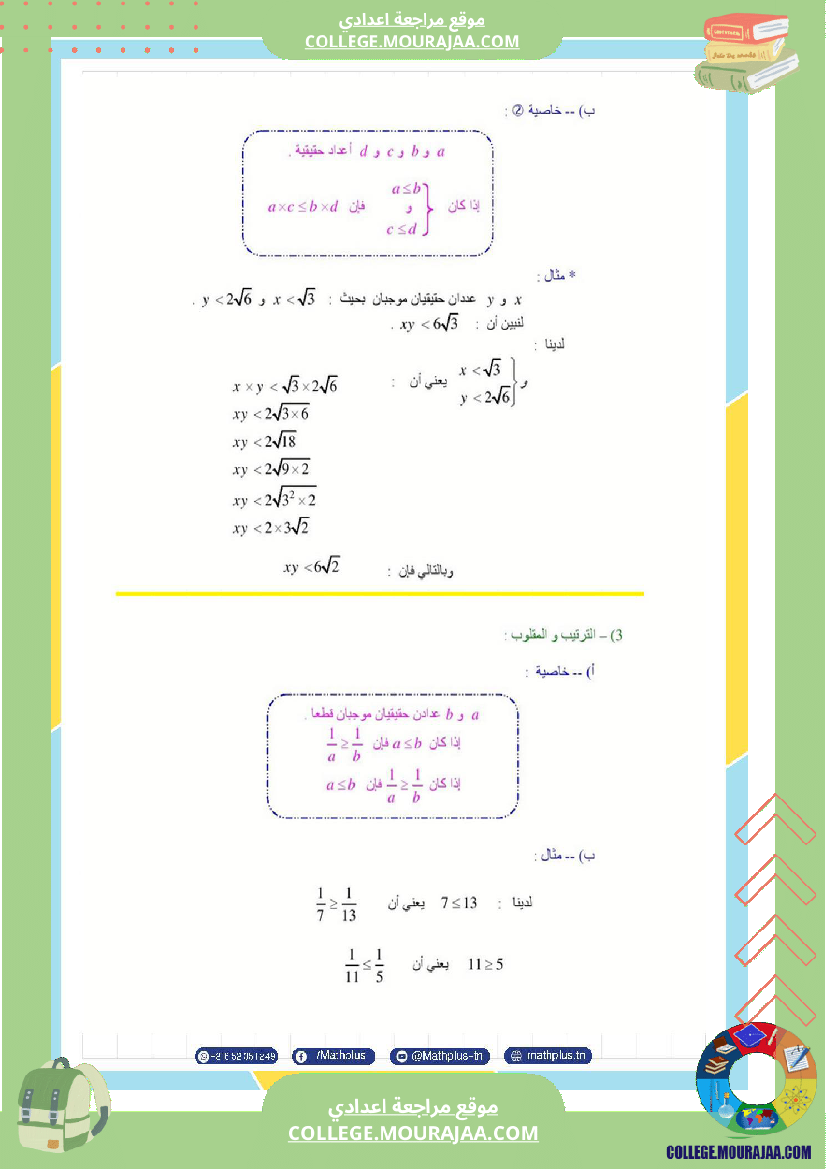 موقع مراجعة اعدادي
COLLEGE.MOURAJAA.COM
ب) -- خاصية ② :
a و b و c و d أعداد حقيقية .
إذا كان a≤b و c≤d فإن a×c≤b×d
* مثال :
x و y عددان حقيقيان موجبان بحيث : x<√3 و y<2√6 .
لنبين أن : xy<6√3 .
لدينا :
x<√3 و y<2√6 يعني أن : x×y<√3×2√6
xy<2√3×6
xy<2√18
xy<2√9×2
xy<2√3²×2
xy<2×3√2
وبالتالي فإن : xy<6√2
3) – الترتيب و المقلوب :
أ) -- خاصية :
a و b عدادن حقيقيان موجبان قطعا .
إذا كان a≤b فإن 1/a≥1/b
إذا كان 1/a≥1/b فإن a≤b
ب) -- مثال :
لدينا : 7≤13 يعني أن 1/7≥1/13
11≥5 يعني أن 1/11≤1/5
/Mathplus
@Mathplus-tn
mathplus.tn
موقع مراجعة اعدادي
COLLEGE.MOURAJAA.COM
COLLEGE.MOURAJAA.COM